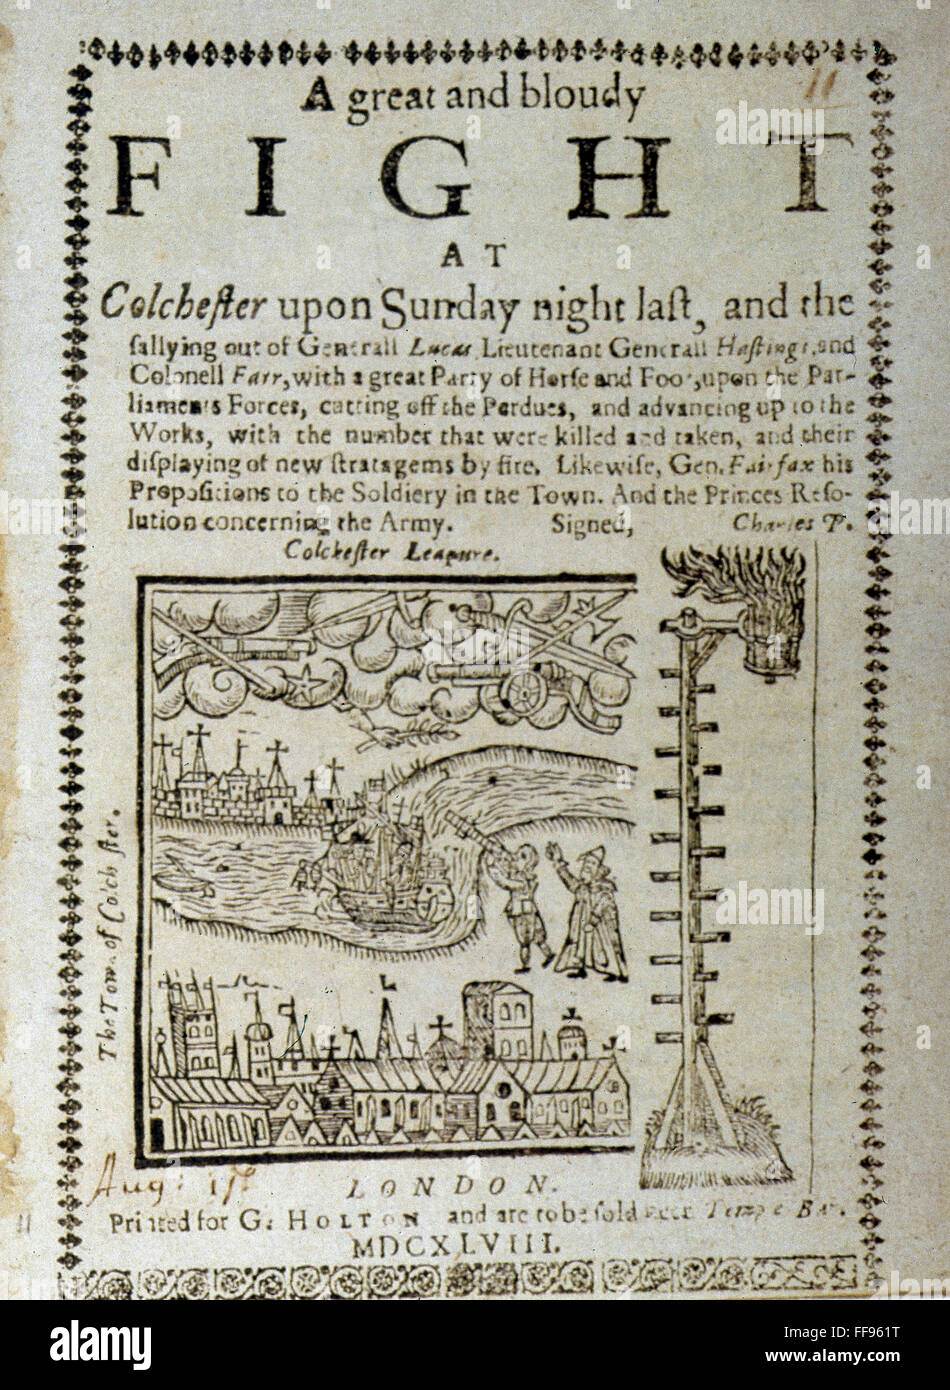 11
A great and bloudy
FIGHT
AT
Colchester upon Sunday night last, and the
sallying out of Generall Lucas Lieutenant Generall Hastings, and
Colonell Farr, with a great Party of Horse and Foot, upon the Par-
liaments Forces, cutting off the Perdues, and advancing up to the
Works, with the number that were killed and taken, and their
displaying of new stratagems by fire. Likewise, Gen. Fairfax his
Propositions to the Soldiery in the Town. And the Princes Reso-
lution concerning the Army. Signed, Charles P.
Colchester Leagure.
The Town of Colchester.
Aug: 17
LONDON.
Printed for G. HOLTON and are to be sold neer Temple Bar.
MDCXLVIII.
alamy
alamy stock photo
FF961T
www.alamy.com